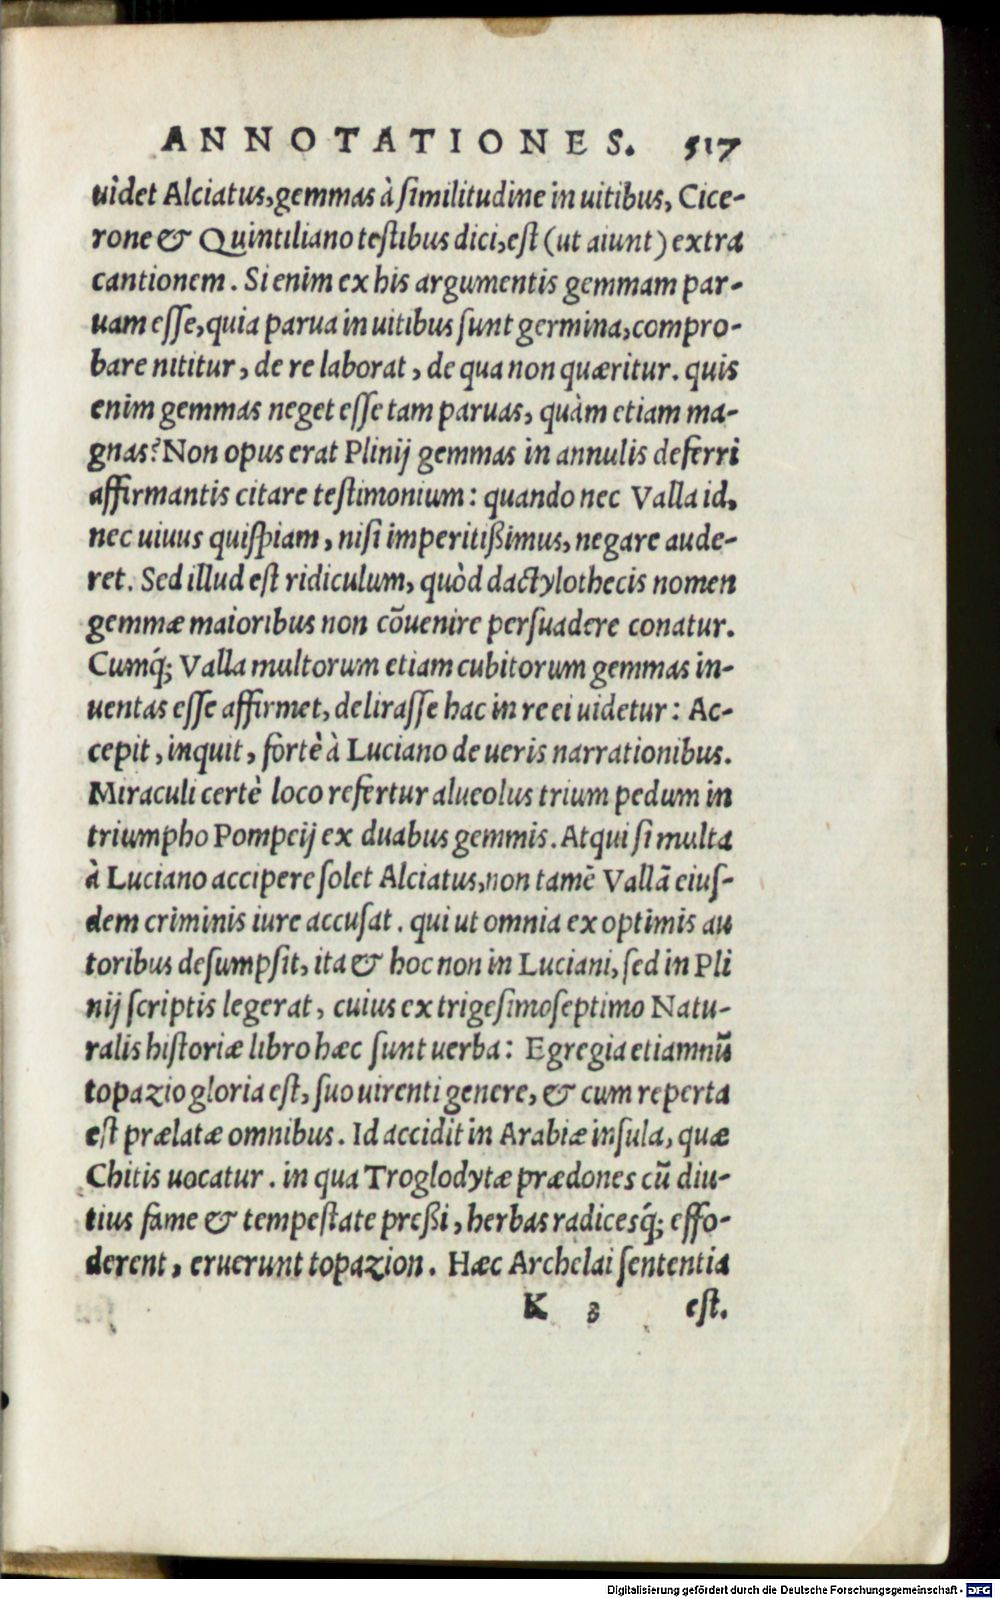 ANNOTATIONES. 517
uìdet Alciatus, gemmas à ſimilitudine in uitibus, Cice-
rone & Quintiliano teſtibus dici, eſt (ut aiunt) extra
cantionem. Si enim ex his argumentis gemmam par-
uam eſſe, quia parua in uitibus ſunt germina, compro-
bare nititur, de re laborat, de qua non quæritur. quis
enim gemmas neget eſſe tam paruas, quàm etiam ma-
gnas? Non opus erat Plinij gemmas in annulis deferri
affirmantis citare teſtimonium: quando nec Valla id,
nec uiuus quiſpiam, niſi imperitißimus, negare aude-
ret. Sed illud eſt ridiculum, quòd dactylothecis nomen
gemmæ maioribus non cōuenire perſuadere conatur.
Cumq́; Valla multorum etiam cubitorum gemmas in-
uentas eſſe affirmet, deliraſſe hac in re ei uidetur: Ac-
cepit, inquit, fortè à Luciano de ueris narrationibus.
Miraculi certè loco refertur alueolus trium pedum in
triumpho Pompeij ex duabus gemmis. Atqui ſi multa
à Luciano accipere ſolet Alciatus, non tamē Vallā eiuſ-
dem criminis iure accuſat. qui ut omnia ex optimis au
toribus deſumpſit, ita & hoc non in Luciani, ſed in Pli
nij ſcriptis legerat, cuius ex trigeſimoſeptimo Natu-
ralis hiſtoriæ libro hæc ſunt uerba: Egregia etiamnū
topazio gloria eſt, ſuo uirenti genere, & cum reperta
eſt prælatæ omnibus. Id accidit in Arabiæ inſula, quæ
Chitis uocatur. in qua Troglodytæ prædones cū diu-
tius fame & tempeſtate preßi, herbas radicesq́; effo-
derent, eruerunt topazion. Hæc Archelai ſententia
K 3 eſt.
Digitalisierung gefördert durch die Deutsche Forschungsgemeinschaft - DFG